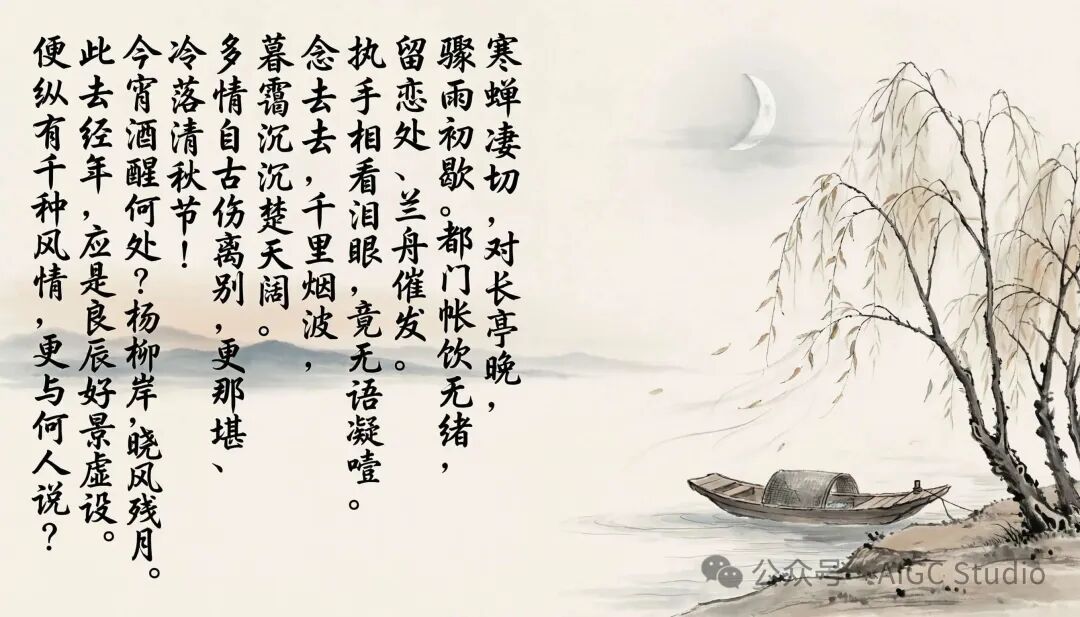 寒蝉凄切，对长亭晚，
骤雨初歇。都门帐饮无绪，
留恋处、兰舟催发。
执手相看泪眼，竟无语凝噎。
念去去，千里烟波，
暮霭沉沉楚天阔。
多情自古伤离别，更那堪、
冷落清秋节！
今宵酒醒何处？杨柳岸，晓风残月。
此去经年，应是良辰好景虚设。
便纵有千种风情，更与何人说？
公众号 · AIGC Studio